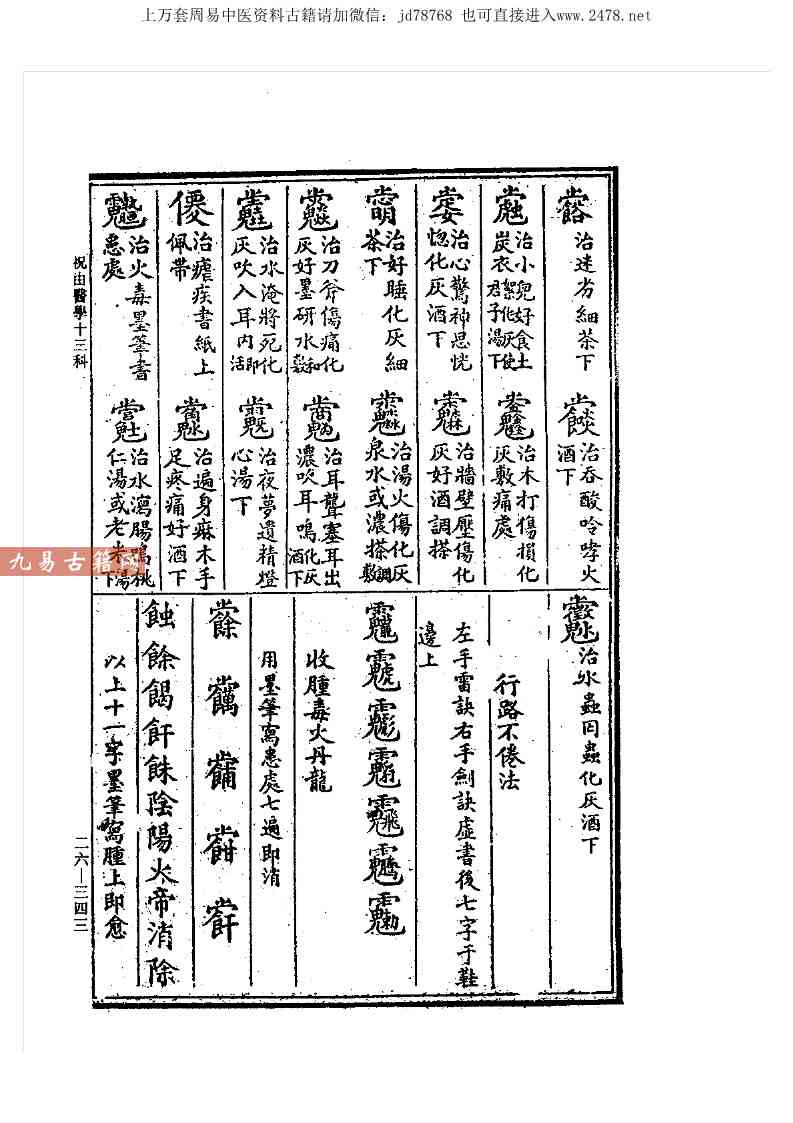 上万套周易中医资料古籍请加微信：jd78768 也可直接进入www.2478.net
治迷劣細茶下
治吞酸吟哮火
酒下
治小兒好食土
炭衣絮化灰使
君子湯下
治木打傷損化
灰敷痛處
治心驚神思恍
惚化灰酒下
治牆壁壓傷化
灰好酒調搽
治好睡化灰細
茶下
治湯火傷化灰
泉水或濃搽調敷
治刀斧傷痛化
灰好墨研水和敷
治耳聾塞耳出
濃吹耳鳴化灰酒下
治水淹將死化
灰吹入耳內即活
治夜夢遺精燈
心湯下
治瘧疾書紙上
佩帶
治遍身麻木手
足疼痛好酒下
治火毒墨筆書
患處
治水瀉腸鳴桃
仁湯或老米湯下
治水蟲囙蟲化灰酒下
行路不倦法
左手雷訣右手劍訣虛書後七字于鞋
邊上
收腫毒火丹龍
用墨筆寫患處七遍即消
蝕餘餲飦餗陰陽火帝消除
以上十一字墨筆寫腫上即愈
祝由醫學十三科
二六—三四三
九易古籍网